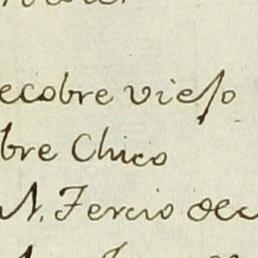 ecobre viejo
bre Chico
N. Fercio dec